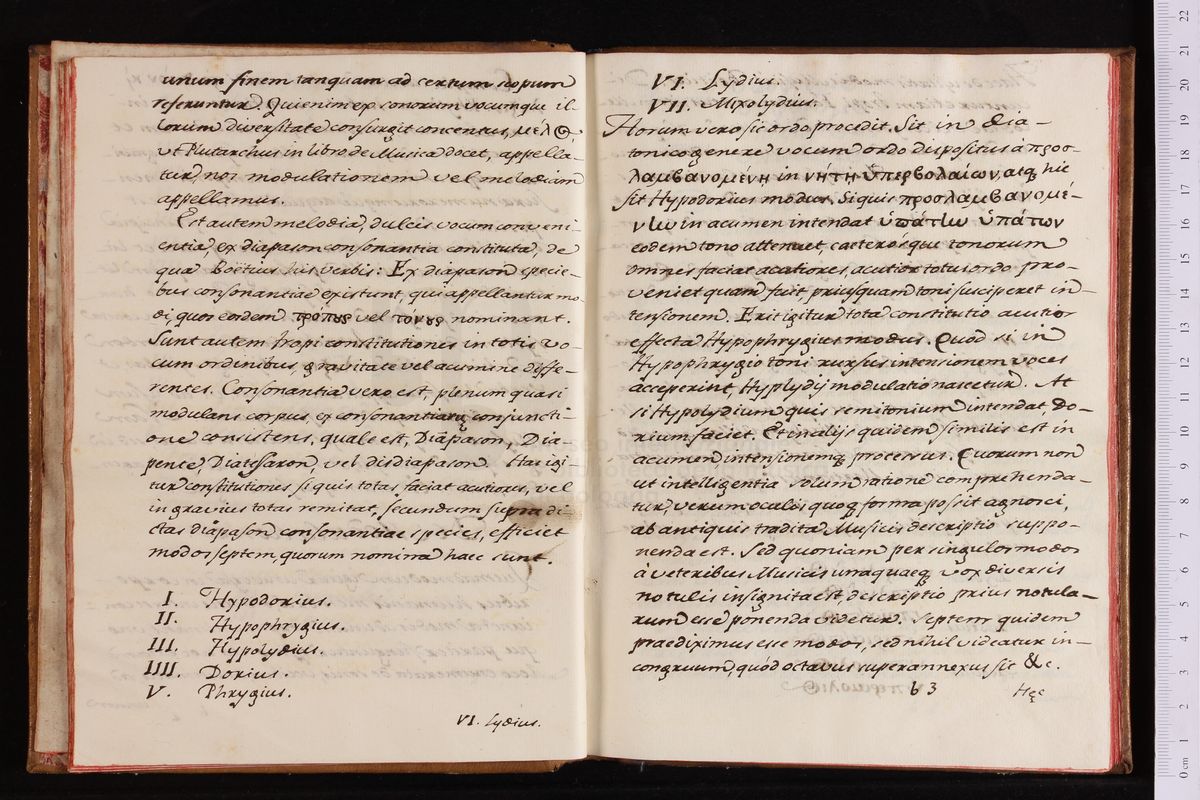 unum finem tanquam ad certum scopum
referuntur. Qui enim ex sonorum vocumque il-
lorum diversitate consurgit concentus, μέλ☉,
ut Plutarchus in libro de Musica docet, appella-
tur, nos modulationem vel melodiam
appellamus.
Est autem melodia, dulcis vocum conveni-
entia, ex diapason consonantia constituta, de
qua Boëtius his verbis: Ex diapason specie-
bus consonantiae existunt, qui appellantur mo-
di, quos eosdem τρόπους vel τόνους nominant.
Sunt autem tropi constitutiones in totis vo-
cum ordinibus, gravitate vel acumine diffe-
rentes. Consonantia vero est, plenum quasi
modulans corpus, ex consonantiarũ conjuncti-
one consistens, quale est, Diapason, Dia-
pente, Diatessaron, vel disdiapason. Has igi-
tur constitutiones si quis totas faciat acutiores, vel
in gravius totas remitat, secundum supra di-
ctas diapason consonantiae species, efficiet
modos septem, quorum nomina haec sunt.
I. Hypodorius.
II. Hypophrygius.
III. Hypolydius.
IIII. Dorius.
V. Phrygius.
VI. Lydius.
VI. Lydius.
VII. Mixolydius.
Horum vero sic ordo procedit. Sit in dia-
tonico genere vocum ordo dispositus à προσ-
λαμβανομένη in νήτη ὑπερβολαίων, atq́ hic
sit Hypodorius modus. Si quis προσλαμβανομέ-
νίω in acumen intendat ὑπάτίω ὑπάτων
eodem tono attenuet, caeterosque tonorum
omnes faciat acutiores, acutior totus ordo pro-
veniet quam fuit, priusquam toni susciperet in-
tensionem. Erit igitur tota constitutio acutior
effecta Hypophrygius modus. Quod si in
Hypophrygio toni rursus intensionem voces
acceperint, Hyplydij modulatio nascetur. At
si Hypolydium quis semitonium intendat, Do-
rium faciet. Et in alijs quidem similis est in
acumen, intensionemq́ processus. Quorum non
ut intelligentia solum ratione comprehenda-
tur, verum oculis quoq́ forma possit agnosci
ab antiquis tradita Musicis descriptio suppo-
nenda est. Sed quoniam per singulos modos
à veteribus Musicis unaquaeq́ vox diversis
notulis insignita est, descriptio prius notula-
rum esse ponenda videtur. Septem quidem
praediximus esse modos, sed nihil videatur in-
congruum, quòd octavus super annexus sit &c.
b 3
Hęc